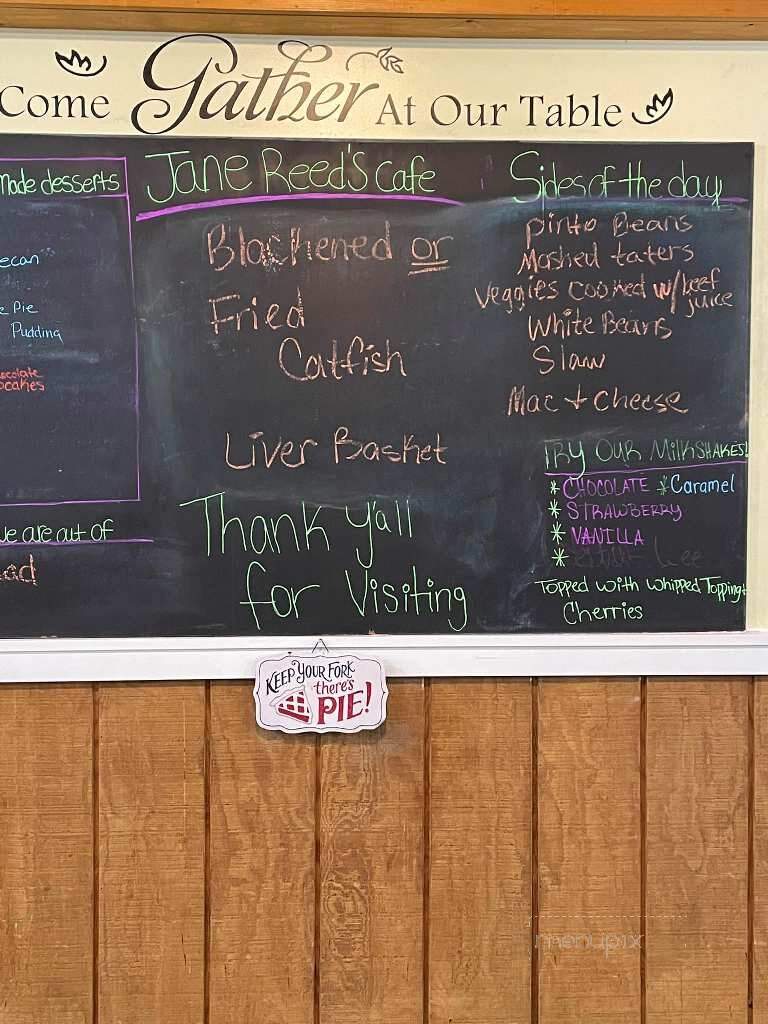 Come Gather At Our Table
Made desserts
ecan
e Pie
Pudding
ocolate
pcakes
we are out of
Jane Reed's cafe
Blackened or
Fried
Catfish
Liver Basket
Thank Y'all
for Visiting
Sides of the day
pinto Beans
Mashed taters
Veggies cooked w/beef
juice
White Beans
Slaw
Mac + Cheese
TRY OUR MILKSHAKES!
* CHOCOLATE * Caramel
* STRAWBERRY
* VANILLA
*
Topped with whipped Topping+
Cherries
KEEP YOUR FORK
there's
PIE!
menupix